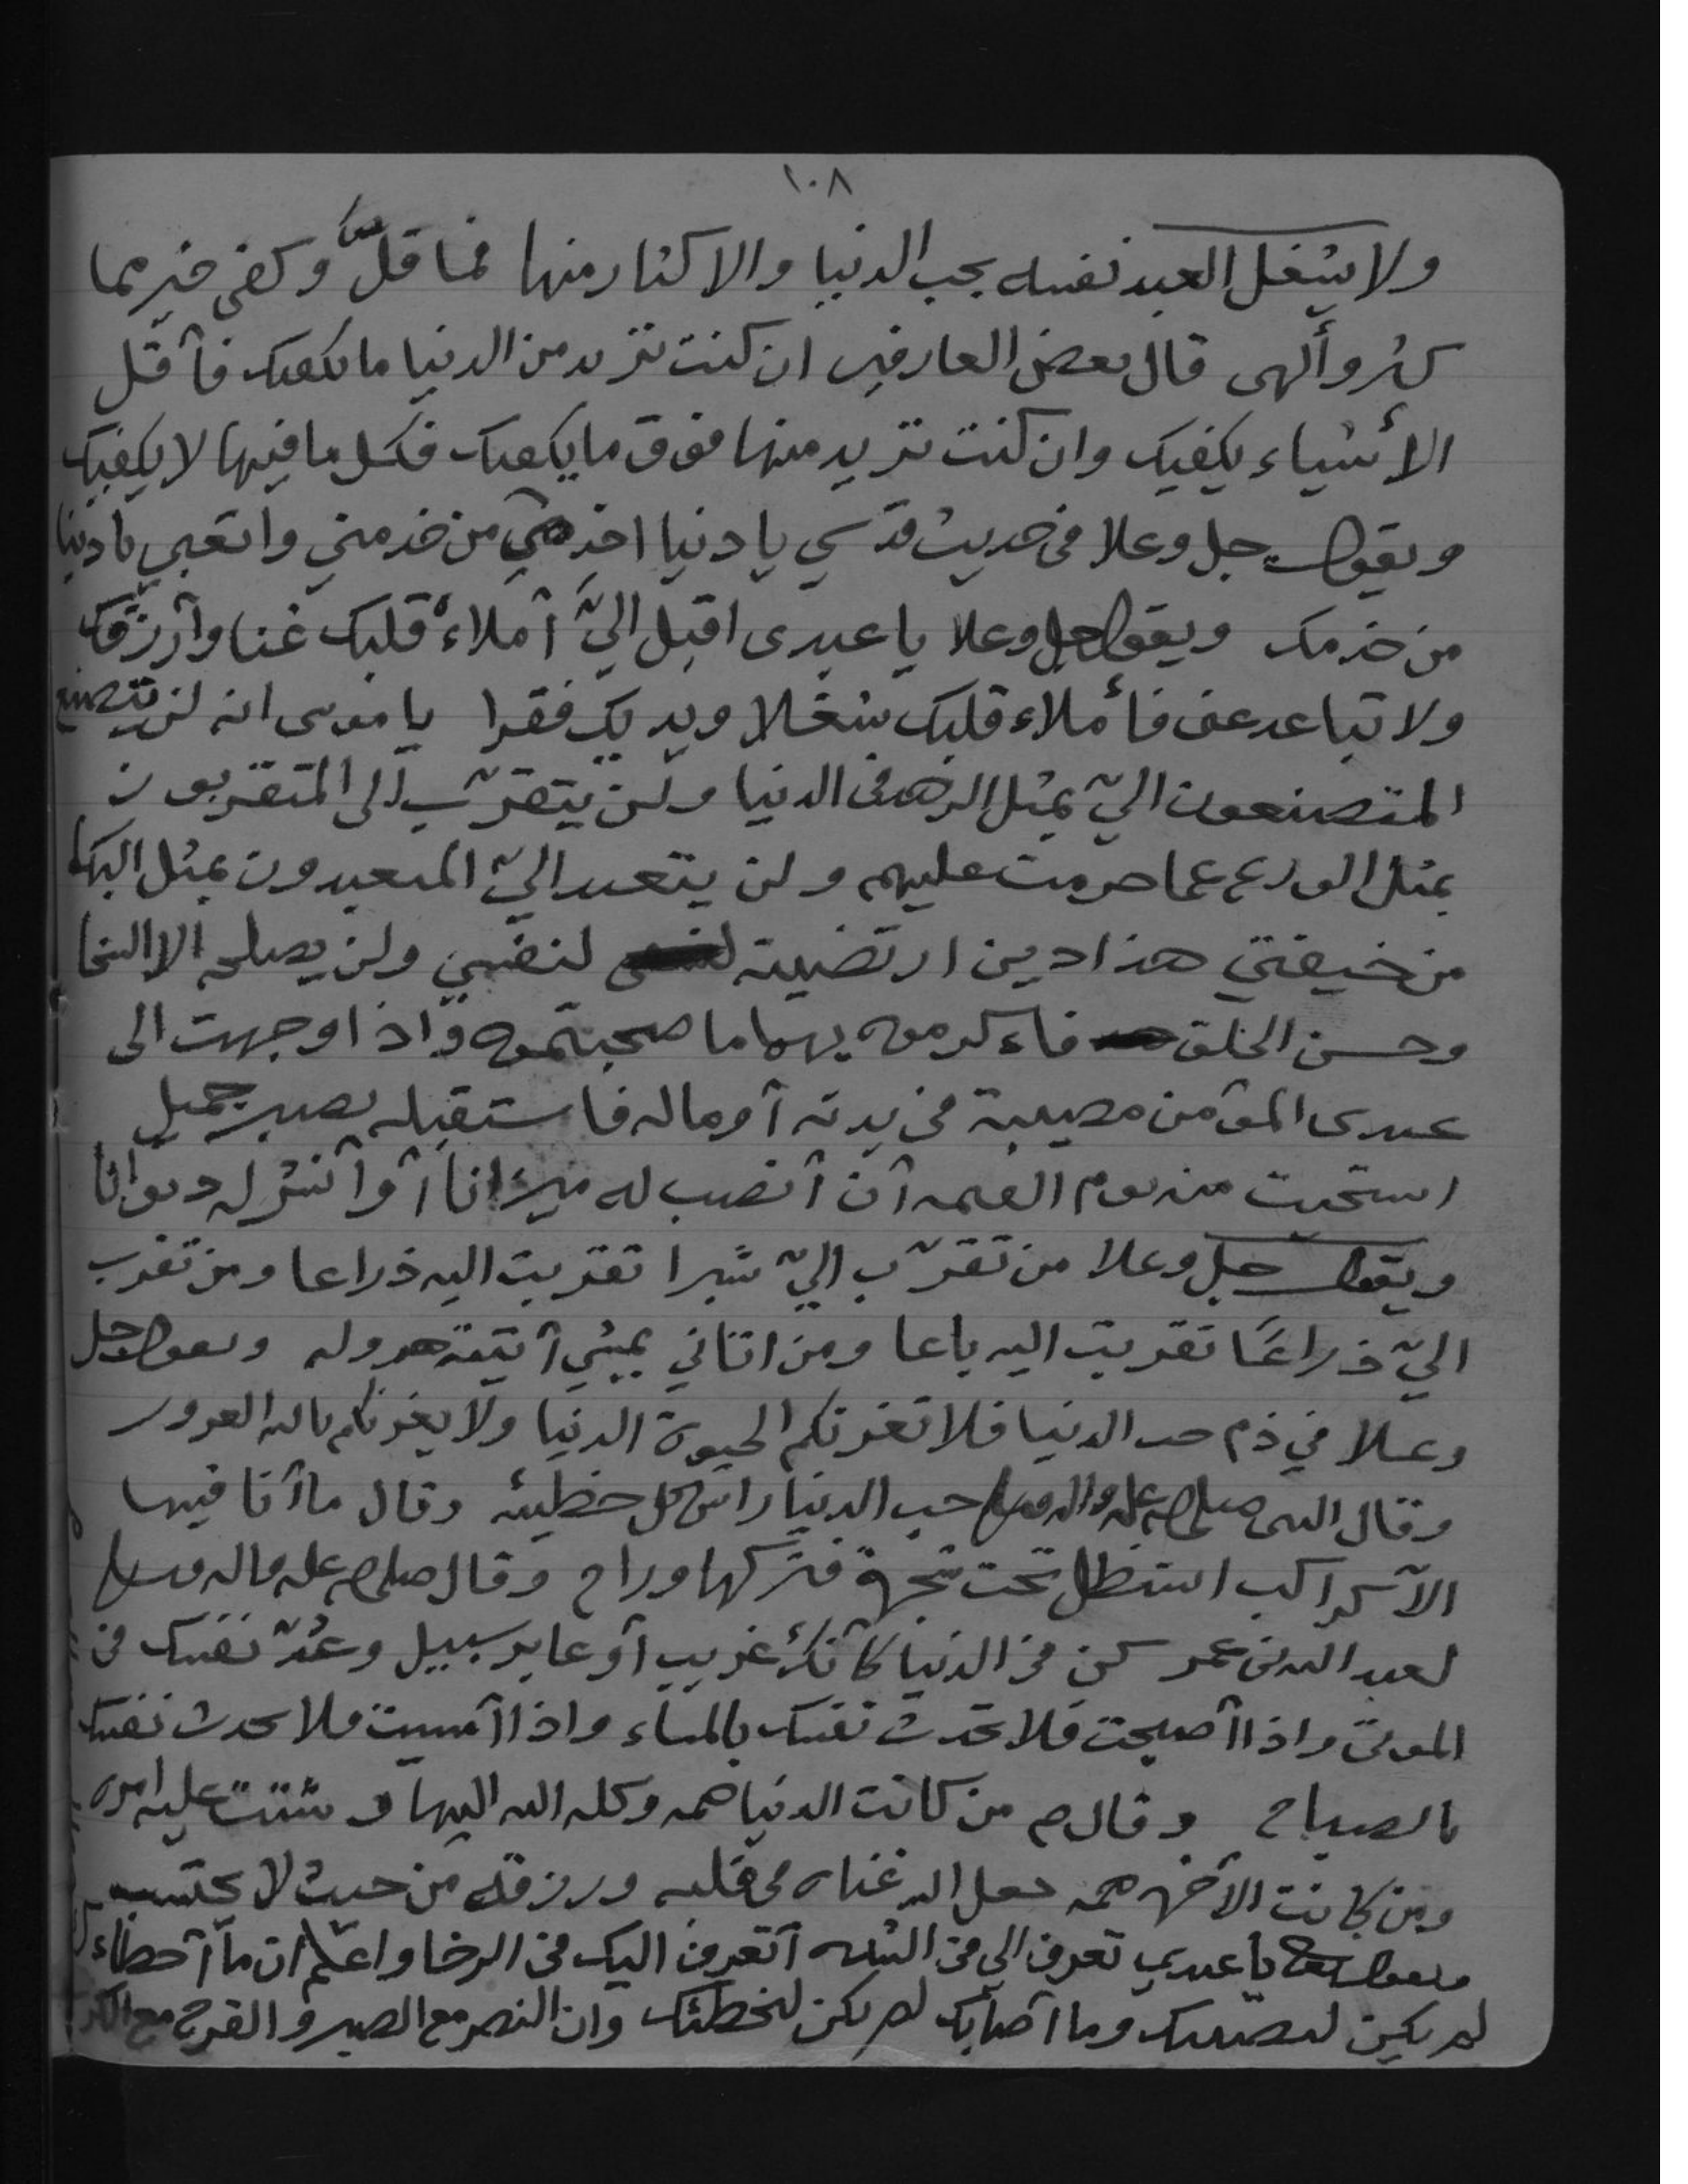 ١٠٨
ولا يشغل العبد نفسه بحب الدنيا والاكثار منها فما قلّ وكفى خير مما
كثر وألهى قال بعض العارفين ان كنت تريد من الدنيا ما يكفيك فآقل
الأشياء يكفيك وان كنت تريد منها فوق ما يكفيك فكل ما فيها لا يكفيك
ويقول جل وعلا في حديث قدسي يا دنيا اخدمي من خدمني واتعبي يا دنيا
من خدمك ويقول جل وعلا يا عبدى اقبل اليّ آملاء قلبك غنا وآرزقك
ولا تباعد عنى فأملاء قلبك شغلا ويديك فقرا يا موسى انه لن يتصنع
المتصنعون اليّ بمثل الزهد فى الدنيا ولن يتقرّب الى المتقربون
بمثل الورع عما حرمت عليهم ولن يتعبد اليّ المتعبدون بمثل البكا
من خيفتي هذا دين ارتضيته لنفسي ولن يصلحه الا السخا
وحسن الخلق فاءكرموه بهما ما صحبتموه واذا وجهت الى
عبدى المؤمن مصيبة في بدنه آو ماله فاستقبله بصبر جميل
استحيت منه يوم القيمه آن آنصب له ميزانا آو آنشر له ديوانا
ويقول جل وعلا من تقرّب اليّ شبرا تقربت اليه ذراعا ومن تقرب
اليّ ذراعًا تقربت اليه باعا ومن اتاني يمشي آتيته هروله ويقول جل
وعلا في ذم حب الدنيا فلا تغرنكم الحيوة الدنيا ولا يغرنكم بالله الغرور
وقال النبى صلى الله عليه واله وسلم حب الدنيا راس كل خطيئه وقال ما آنا فيها
الآ كراكب استظل تحت شجرة فتركها وراح وقال صلى الله عليه واله وسلم
لعبد الله بن عمر كن في الدنيا كآنك غريب آو عابر سبيل وعُدّ نفسك فى
الموتى واذا آصبحت فلا تحدث نفسك بالمساء واذا آمسيت فلا تحدث نفسك
بالصباح وقال ص من كانت الدنيا همه وكله الله اليها وشتت عليه امره
ومن كانت الآخره همه جعل الله غناه فى قلبه ورزقه من حيث لا يحتسب
ويقول يا عبدي تعرف الي في الشده آتعرف اليك في الرخا واعلم ان ما آخطاءك
لم يكن ليصيبك وما آصابك لم يكن ليخطئك وان النصر مع الصبر والفرج مع الكرب